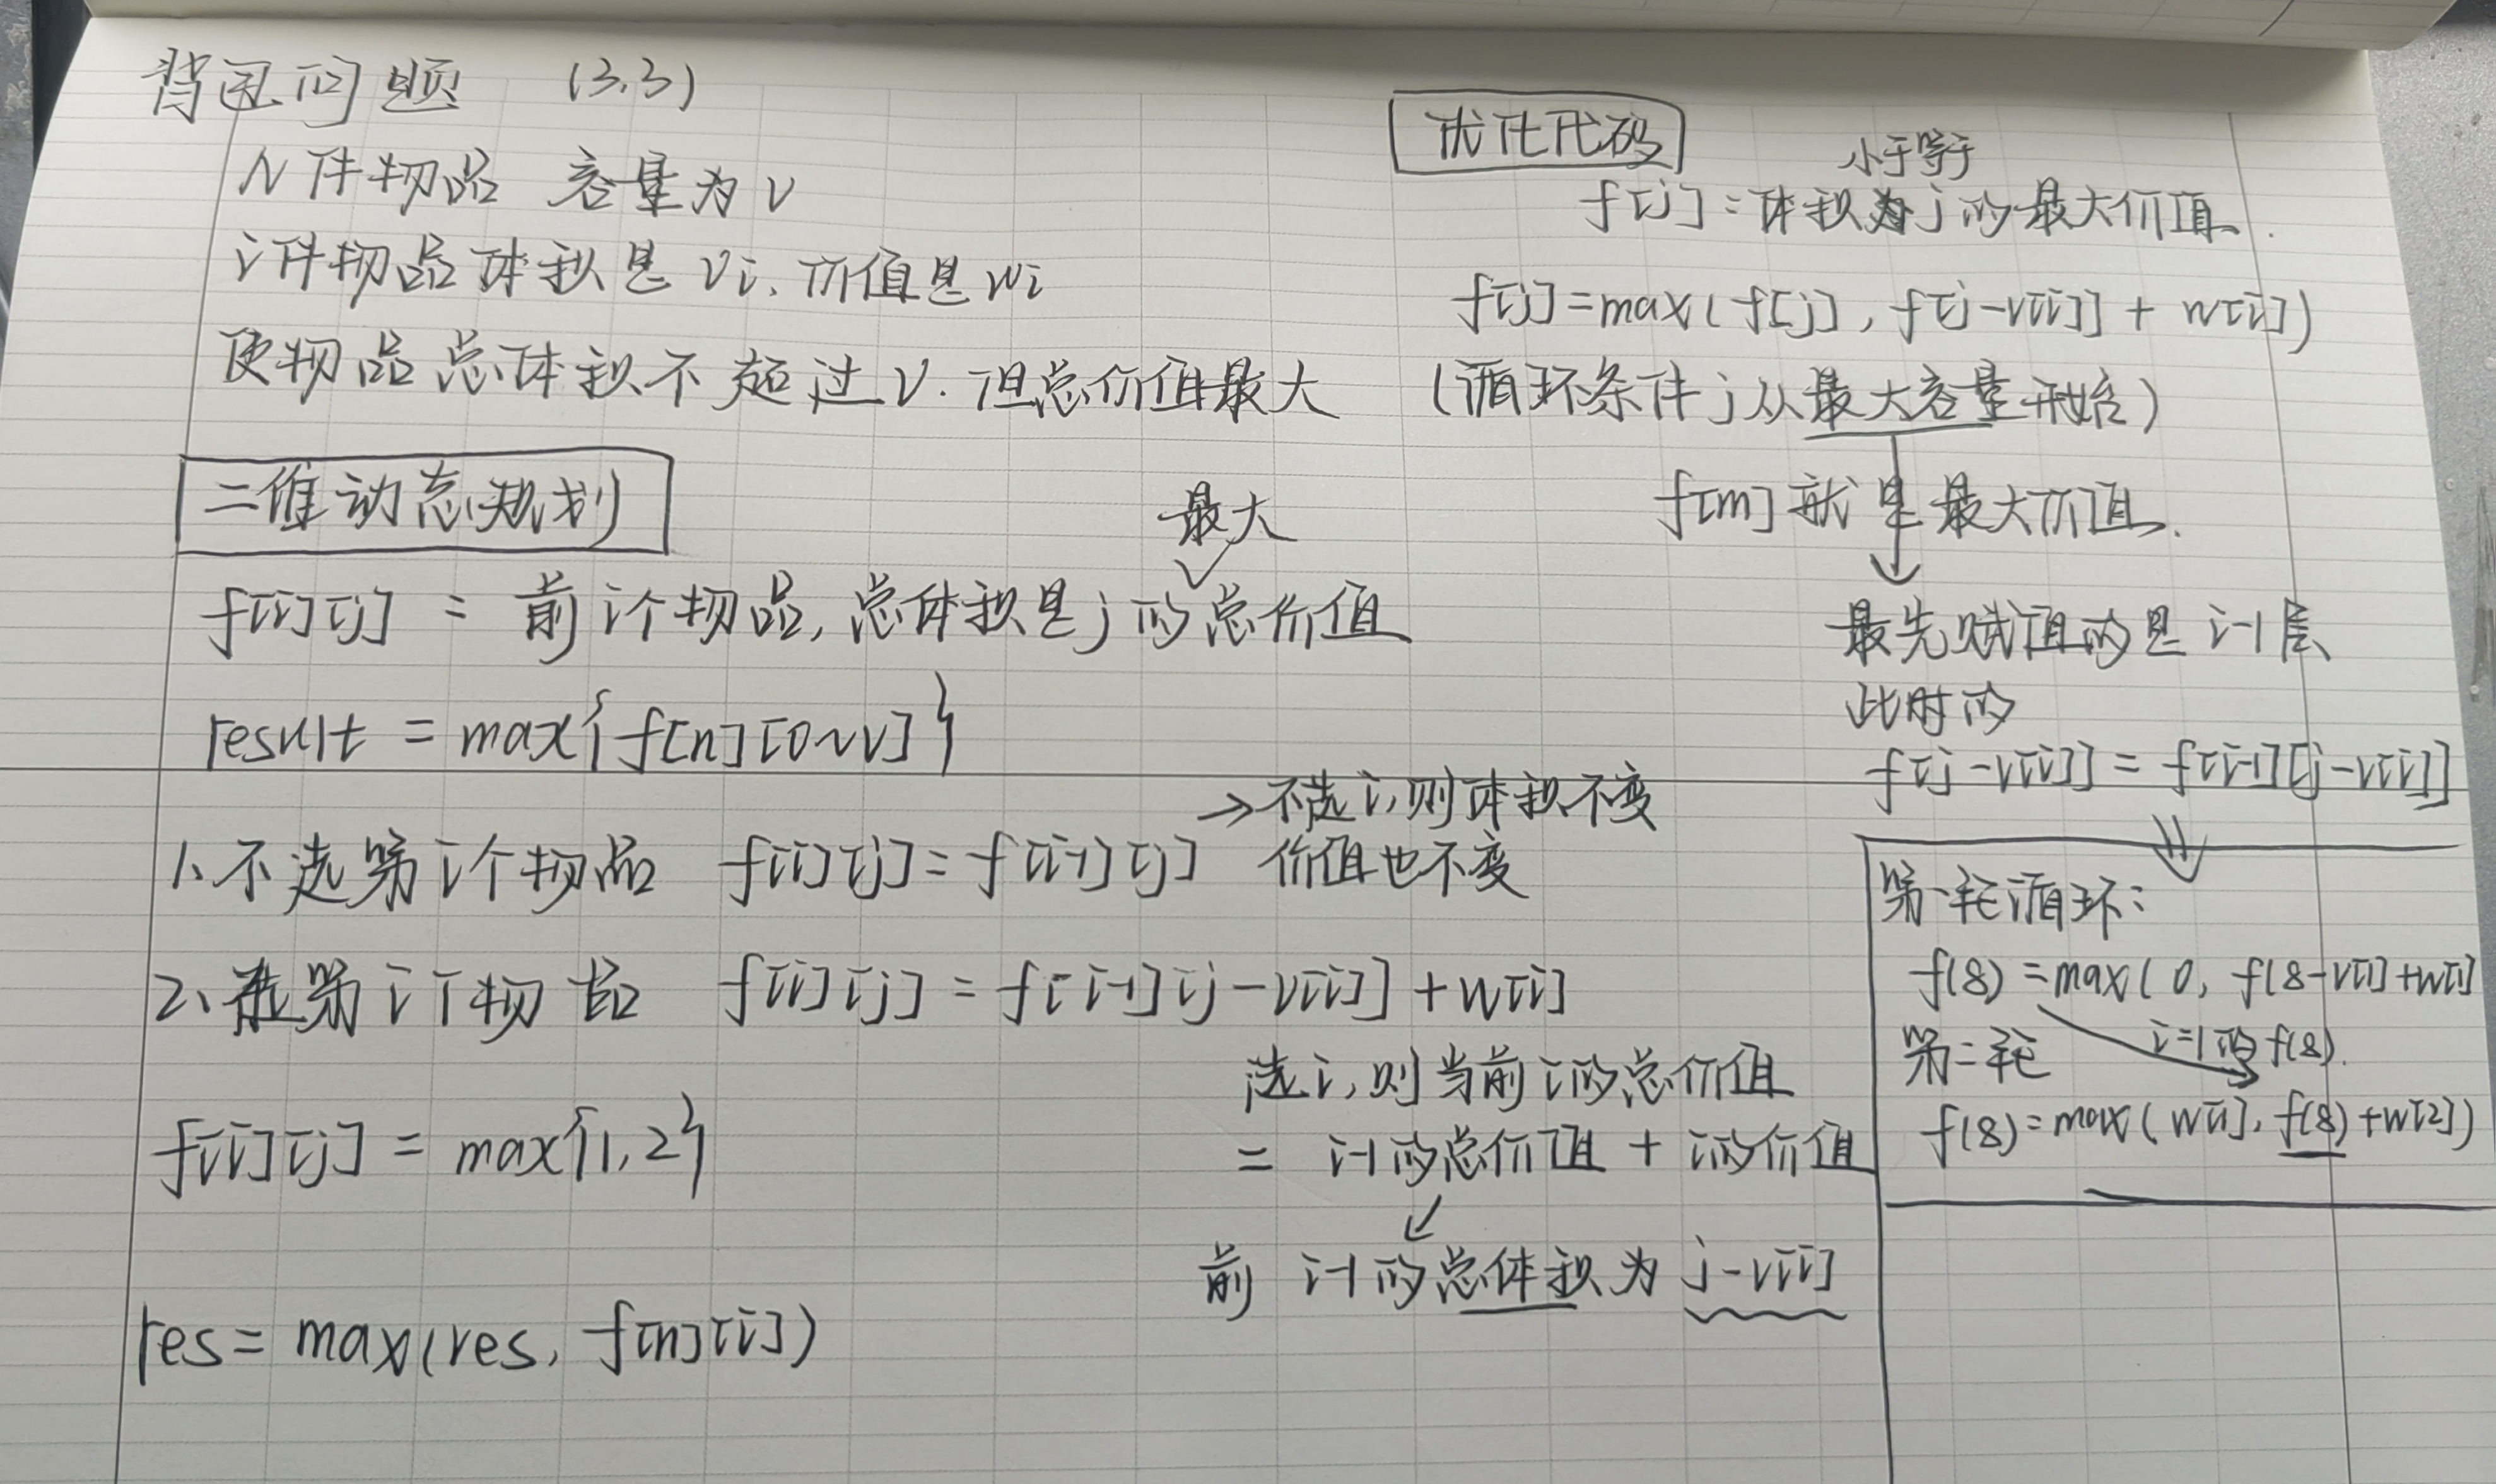 背包问题 (3.3)
N件物品 容量为V
i件物品体积是Vi,价值是Wi
使物品总体积不超过V.但总价值最大
二维动态规划
最大
f[i][j] = 前i个物品,总体积是j的总价值
result = max{f[n][0~V]}
1、不选第i个物品 f[i][j]=f[i-1][j]
→不选i,则体积不变
价值也不变
2、选第i个物品 f[i][j] = f[i-1][j-v[i]]+w[i]
选i,则当前i的总价值
= i-1的总价值 + i的价值
f[i][j] = max{1,2}
前 i-1的总体积为 j-v[i]
res= max(res, f[n][i])
优化代码
小于等于
f[j]=体积为j的最大价值.
f[j]=max(f[j], f[j-v[i]] + w[i])
(循环条件j从最大容量开始)
f[m]就是最大价值.
最先赋值的是i-1层
此时的
f[j-v[i]] = f[i-1][j-v[i]]
第一轮循环:
f(8)=max( 0, f(8-v[1]+w[1]
i=1的f(8).
第二轮
f(8)=max( w[1], f(8)+w[2])